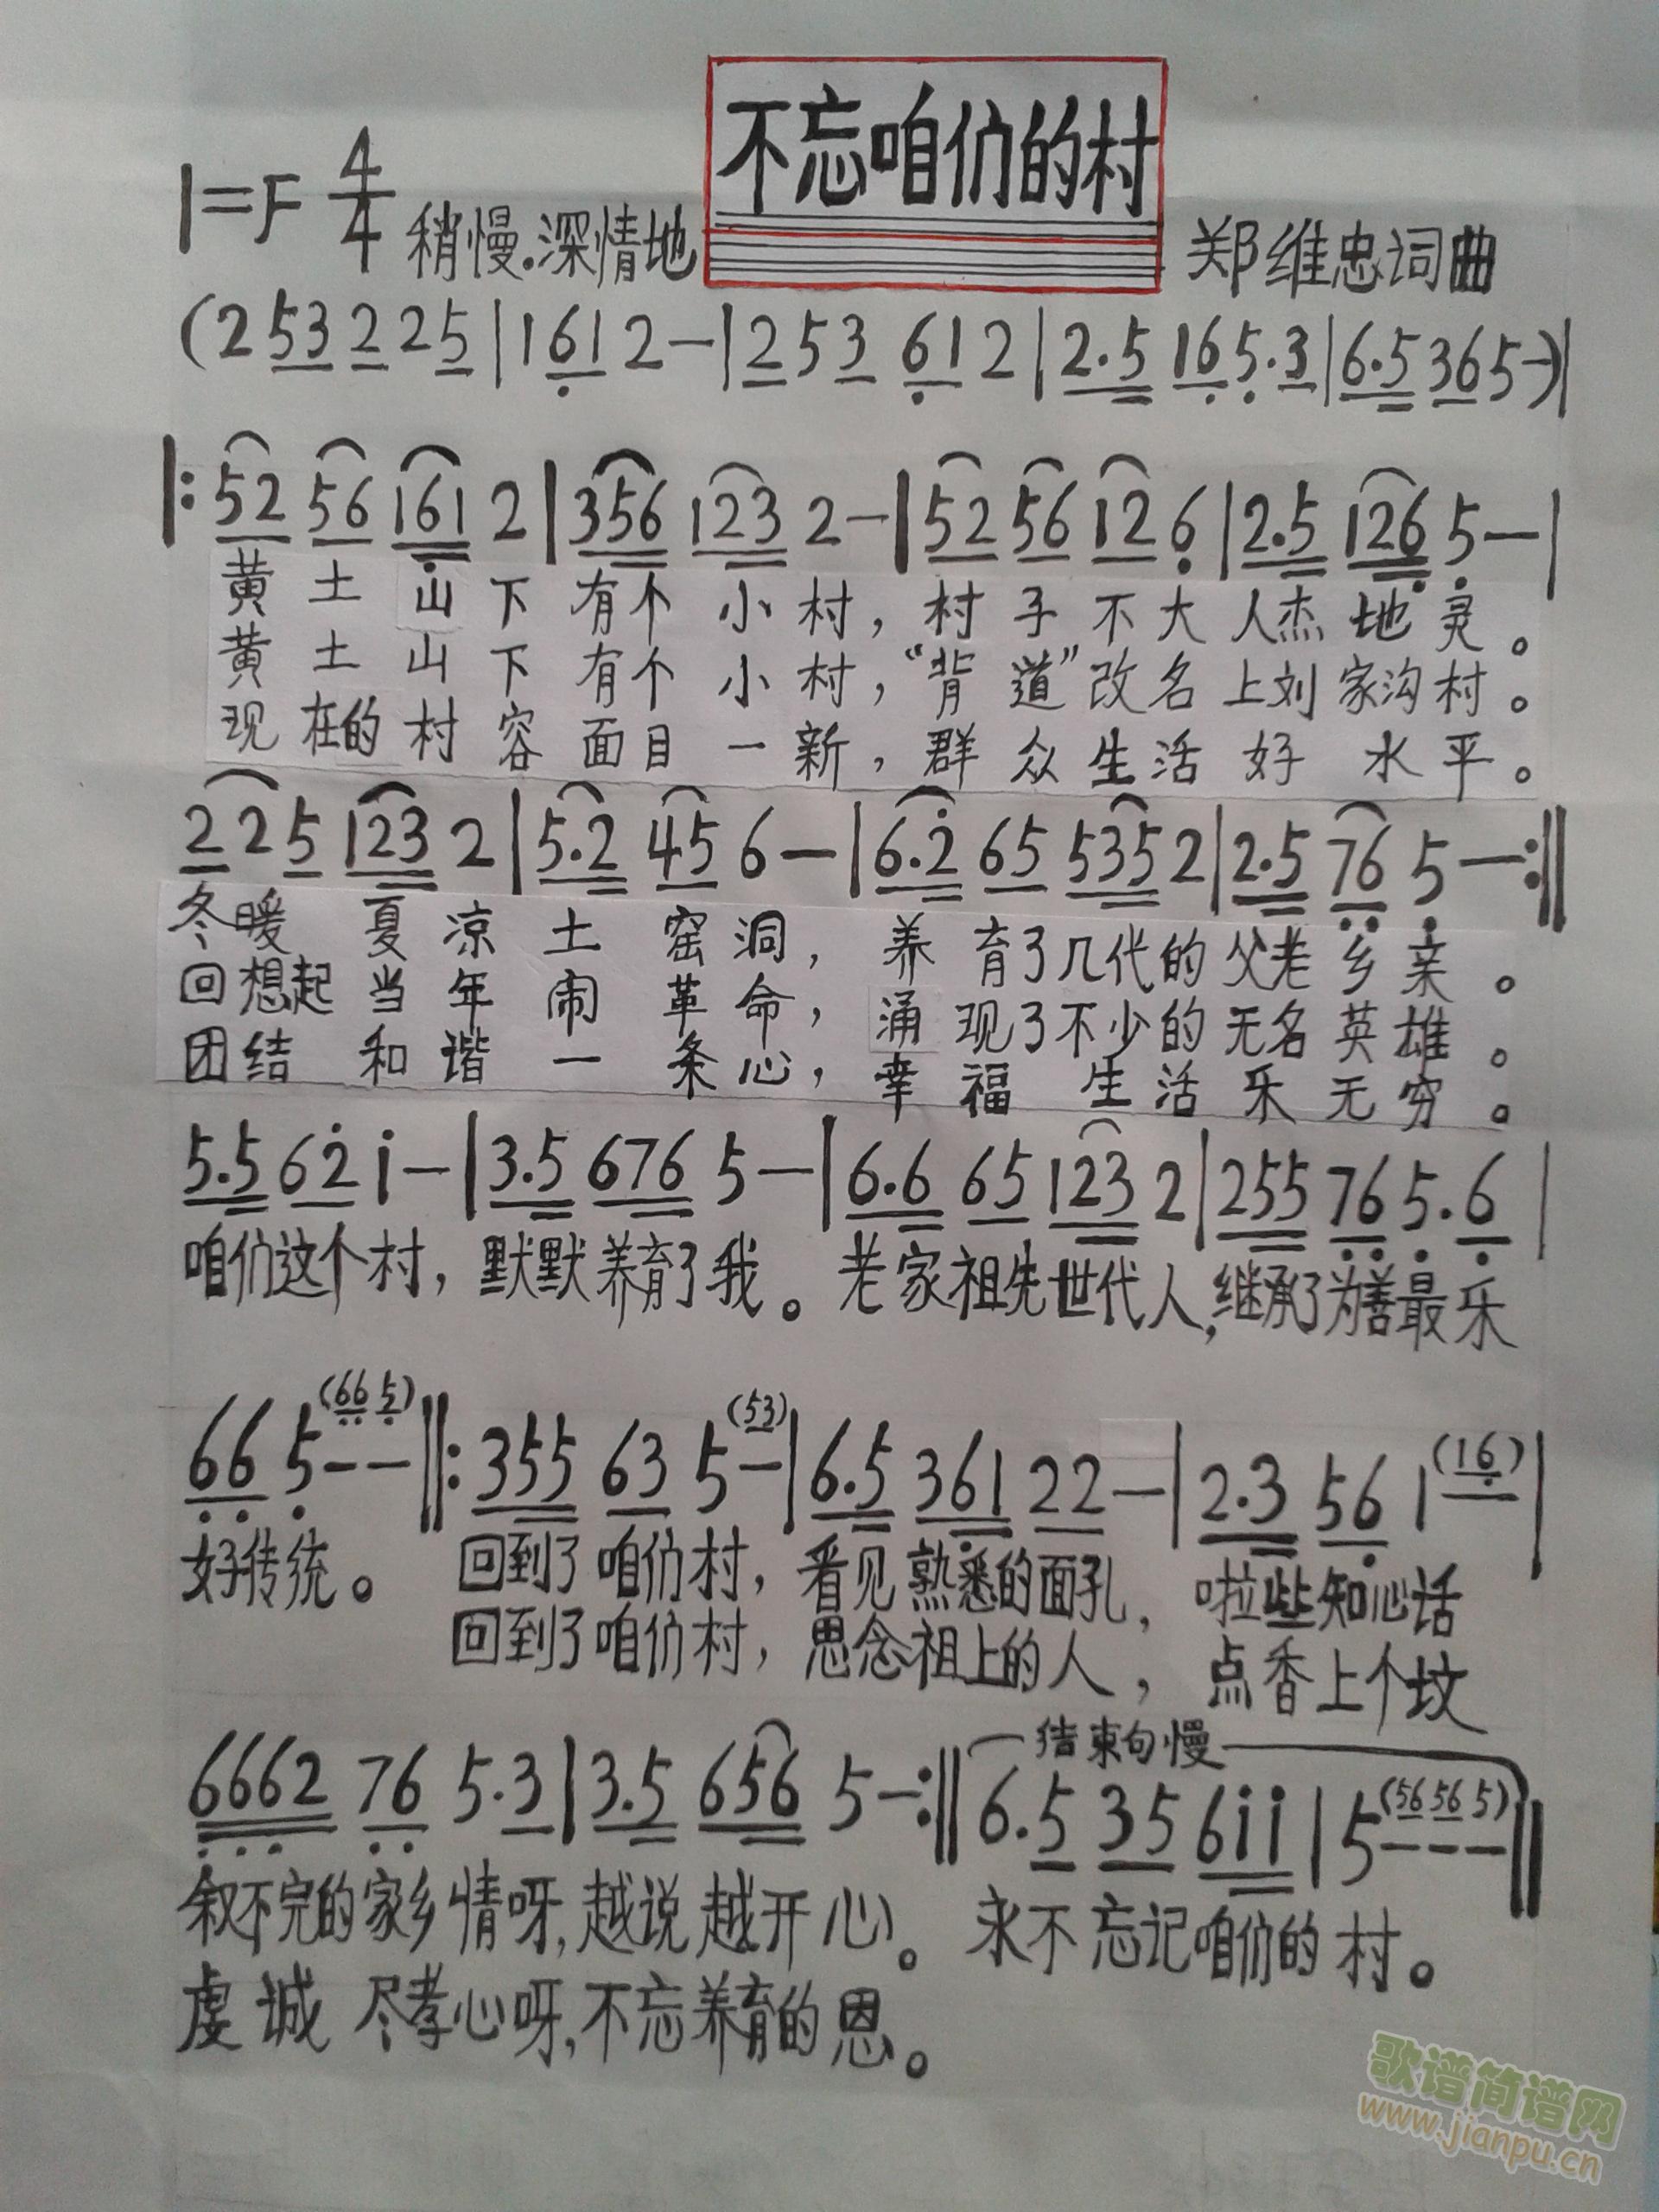 不忘咱们的村
1=F 4/4 稍慢.深情地
郑维忠词曲
(2 53 2 25|161 2—|2 5 3 61 2|2.5 16 5.3|6.5 36 5—)|
|:52 56 161 2|356 123 2—|52 56 12 6|2.5 126 5—|
黄土山下有个小村,村子不大人杰地灵。
黄土山下有个小村,“背道”改名上刘家沟村。
现在的村容面目一新,群众生活好水平。
2 2 5 123 2|5.2 45 6—|6.2 65 535 2|2.5 76 5—:||
冬暖夏凉土窑洞,养育了几代的父老乡亲。
回想起当年闹革命,涌现了不少的无名英雄。
团结和谐一条心,幸福生活乐无穷。
5.5 62 i—|3.5 676 5—|6.6 65 123 2|255 76 5.6|
咱们这个村,默默养育了我。老家祖先世代人,继承了为善最乐
66 5(66 5)——||:355 63 5(53)—|6.5 361 22—|2.3 56 1(16)—|
好传统。回到了咱们村,看见熟悉的面孔,啦些知心话
回到了咱们村,思念祖上的人,点香上个坟
结束句慢
6662 76 5.3|3.5 656 5—:||6.5 35 6ii|5(56 56 5)———||
叙不完的家乡情呀,越说越开心。永不忘记咱们的村。
虔诚尽孝心呀,不忘养育的恩。
歌谱简谱网
www.jianpu.cn